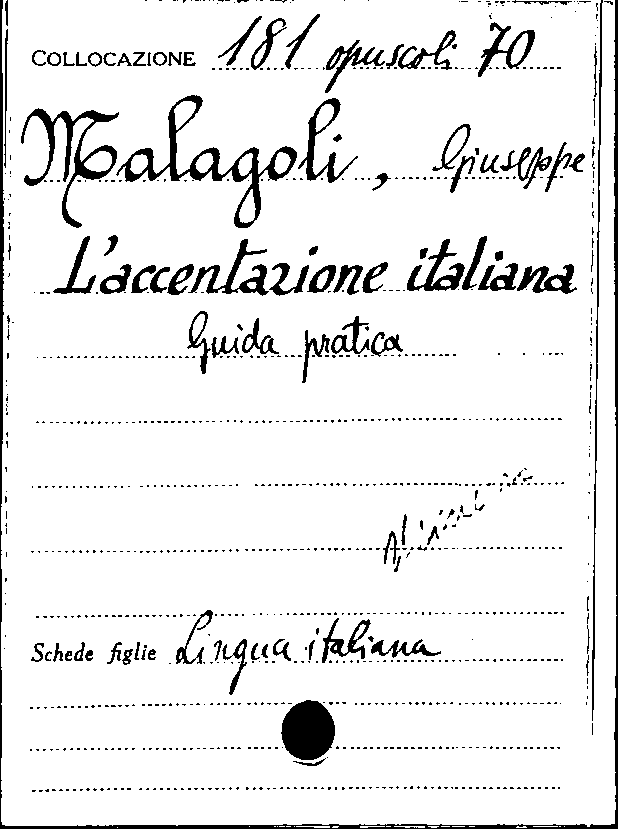 COLLOCAZIONE 181 opuscoli 70
Malagoli, Giuseppe
L'accentazione italiana
Guida pratica
Schede figlie Lingua italiana